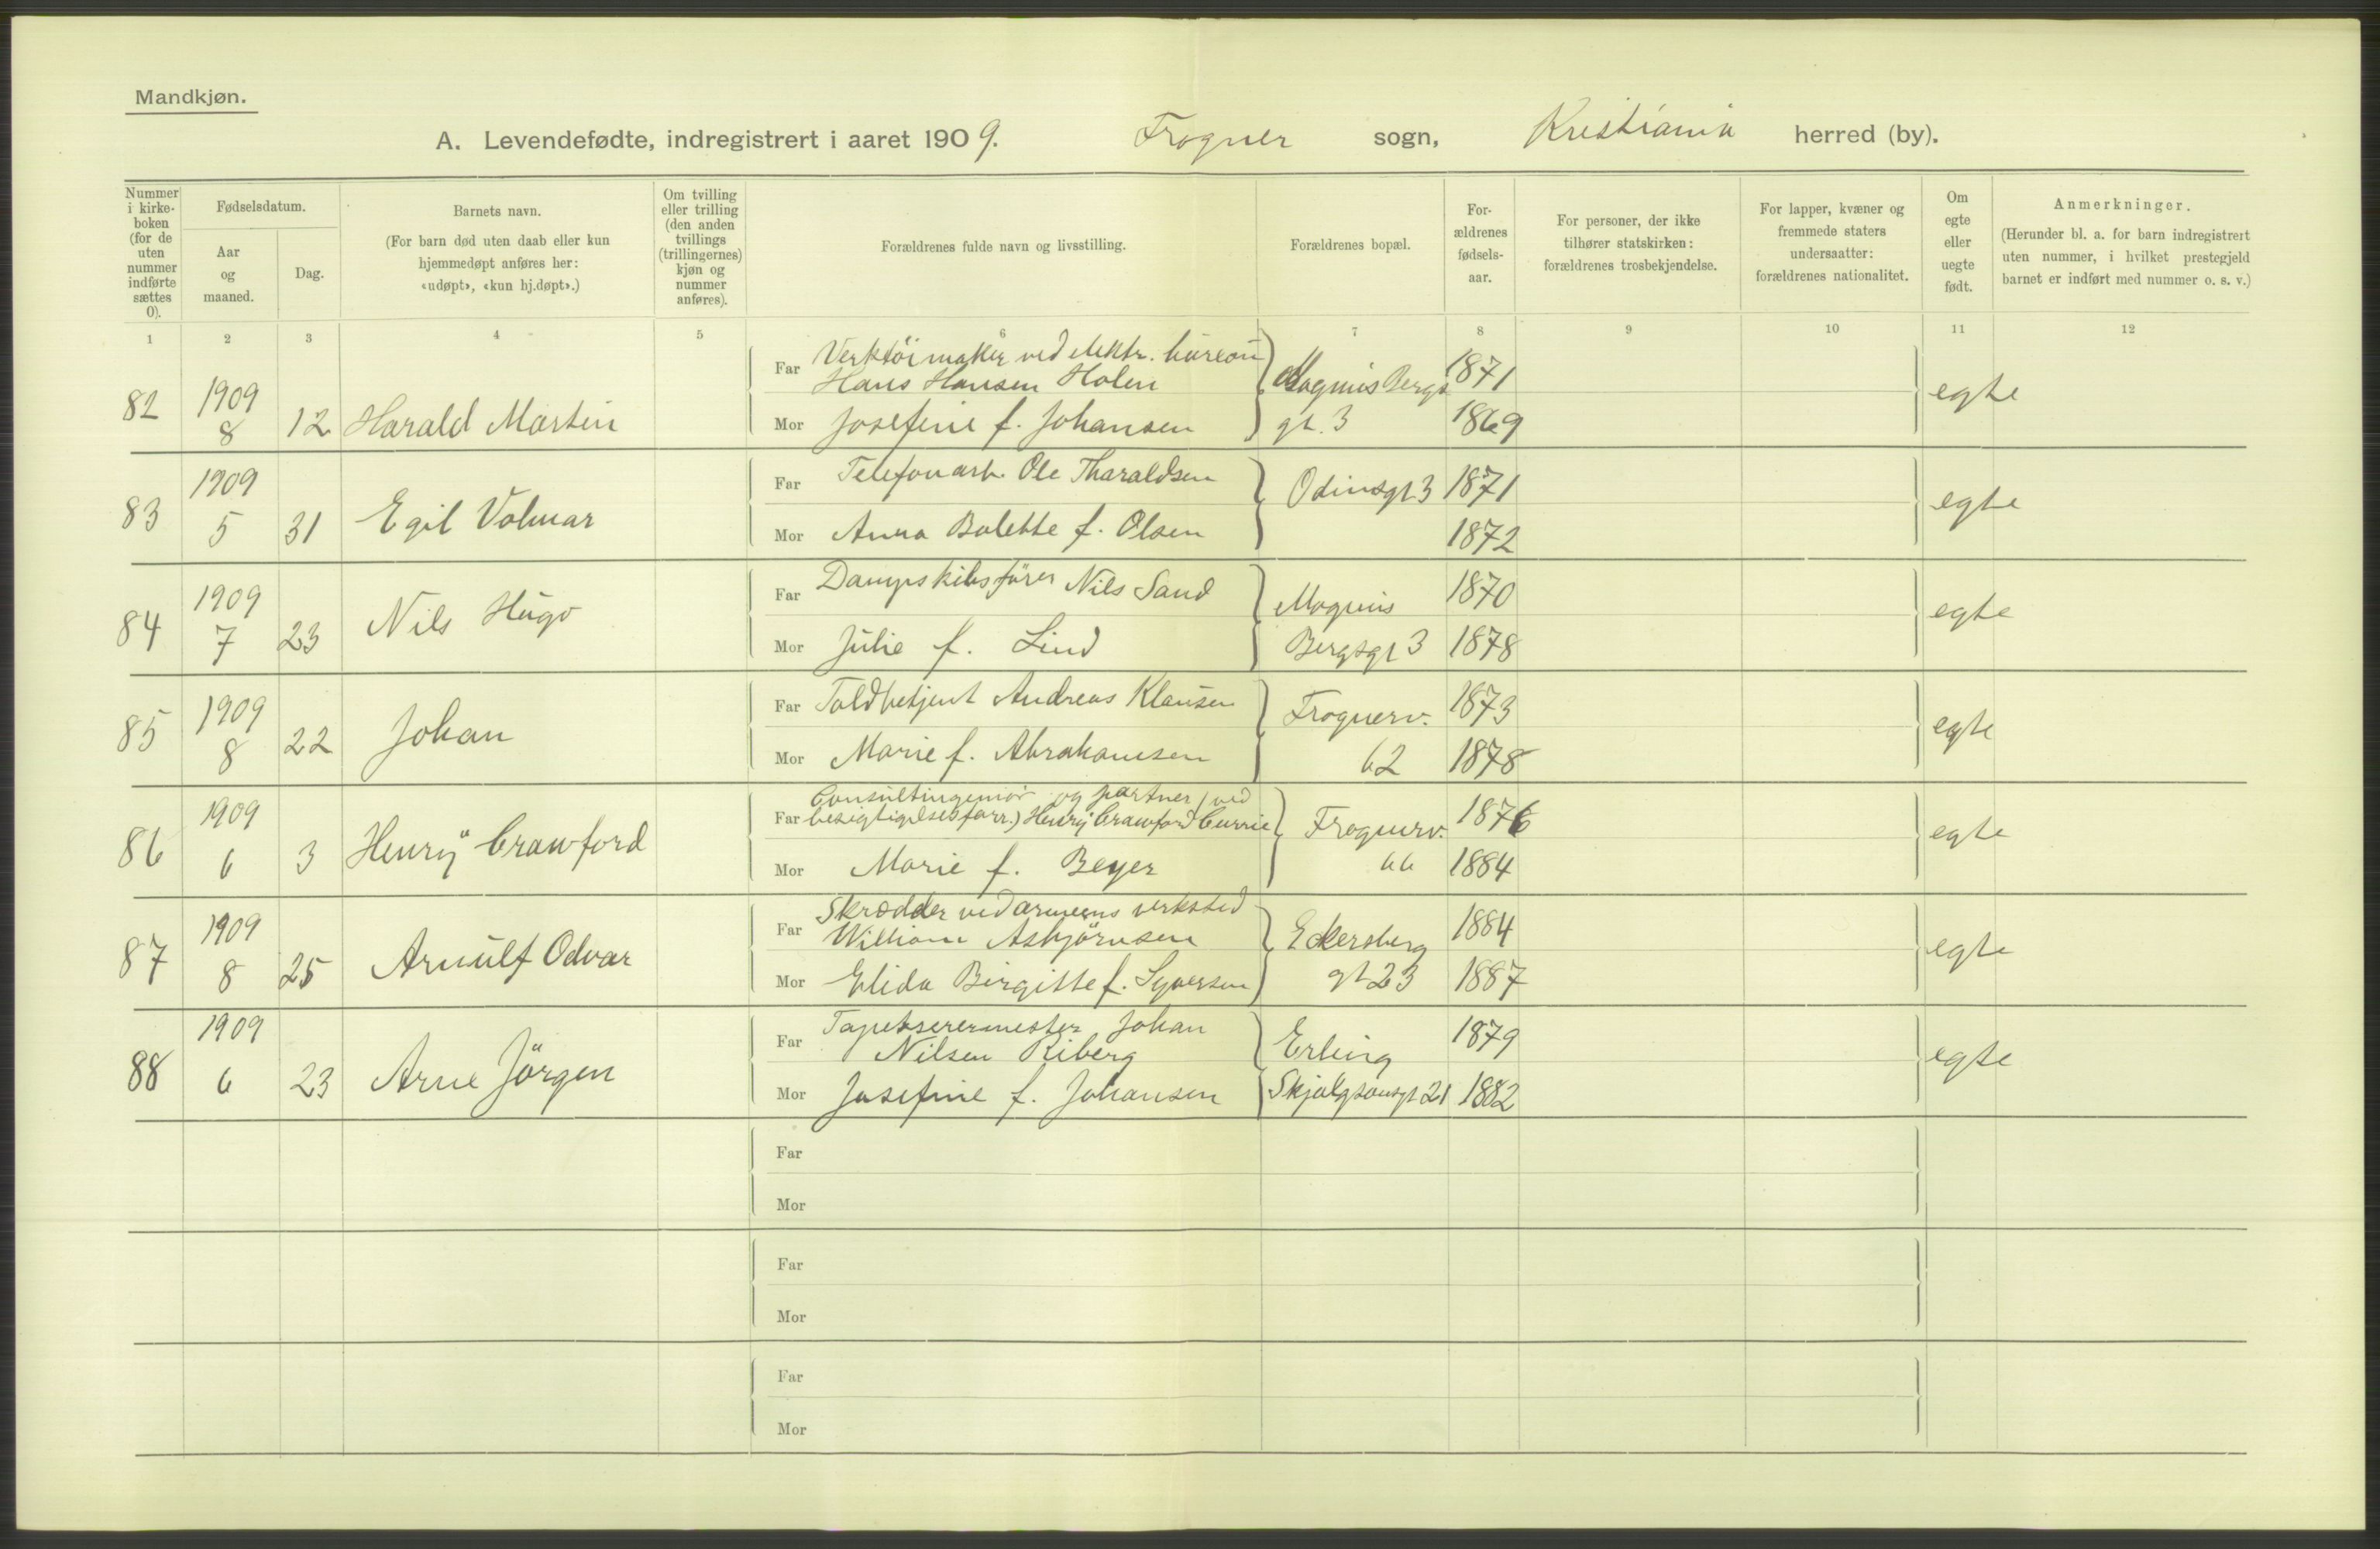 Mandkjøn.
A. Levendefødte, indregistrert i aaret 1909. Frogner sogn, Kristiania herred (by).
Nummer i kirke-boken (for de uten nummer indførte sættes 0).
Fødselsdatum.
Aar og maaned.
Dag.
Barnets navn.
(For barn død uten daab eller kun hjemmedøpt anføres her: «udøpt», «kun hj.døpt».)
Om tvilling eller trilling (den anden tvillings (trillingernes) kjøn og nummer anføres).
Forældrenes fulde navn og livsstilling.
Forældrenes bopæl.
For-ældrenes fødsels-aar.
For personer, der ikke tilhører statskirken: forældrenes trosbekjendelse.
For lapper, kvæner og fremmede staters undersaatter: forældrenes nationalitet.
Om egte eller uegte født.
Anmerkninger.
(Herunder bl. a. for barn indregistrert uten nummer, i hvilket prestegjeld barnet er indført med nummer o. s. v.)
1 2 3 4 5 6 7 8 9 10 11 12
82 1909 8 12 Harald Martin
Far Verktöimaker ved elektr. büreaü
Hans Hansen Holen Magnus Bergs 1871 egte
Mor Josefine f. Johansen gt. 3 1869
83 1909 5 31 Egil Volmar
Far Telefonarb. Ole Tharaldsen Odinsgt 3 1871 egte
Mor Anna Bolette f. Olsen 1872
84 1909 7 23 Nils Hugo
Far Dampskibsförer Nils Sand Magnus 1870 egte
Mor Julie f. Lind Bergsgt 3 1878
85 1909 8 22 Johan
Far Toldbetjent Andreas Klausen Frognerv. 1873 egte
Mor Marie f. Abrahamsen 62 1878
86 1909 6 3 Henry Crawford
Far Consultingeniör og partner (ved
besigtigelsesforr.) Henry Crawford Currie Frognerv. 1876 egte
Mor Marie f. Beyer 66 1884
87 1909 8 25 Arnulf Odvar
Far Skrædder ved armeens verksted
William Asbjörnsen Eckersberg 1884 egte
Mor Elida Birgitte f. Syversen gt 23 1887
88 1909 6 23 Arne Jörgen
Far Tapetserermester Johan
Nilsen Riberg Erling 1879 egte
Mor Josefine f. Johansen Skjalgsonsgt 21 1882
Far
Mor
Far
Mor
Far
Mor